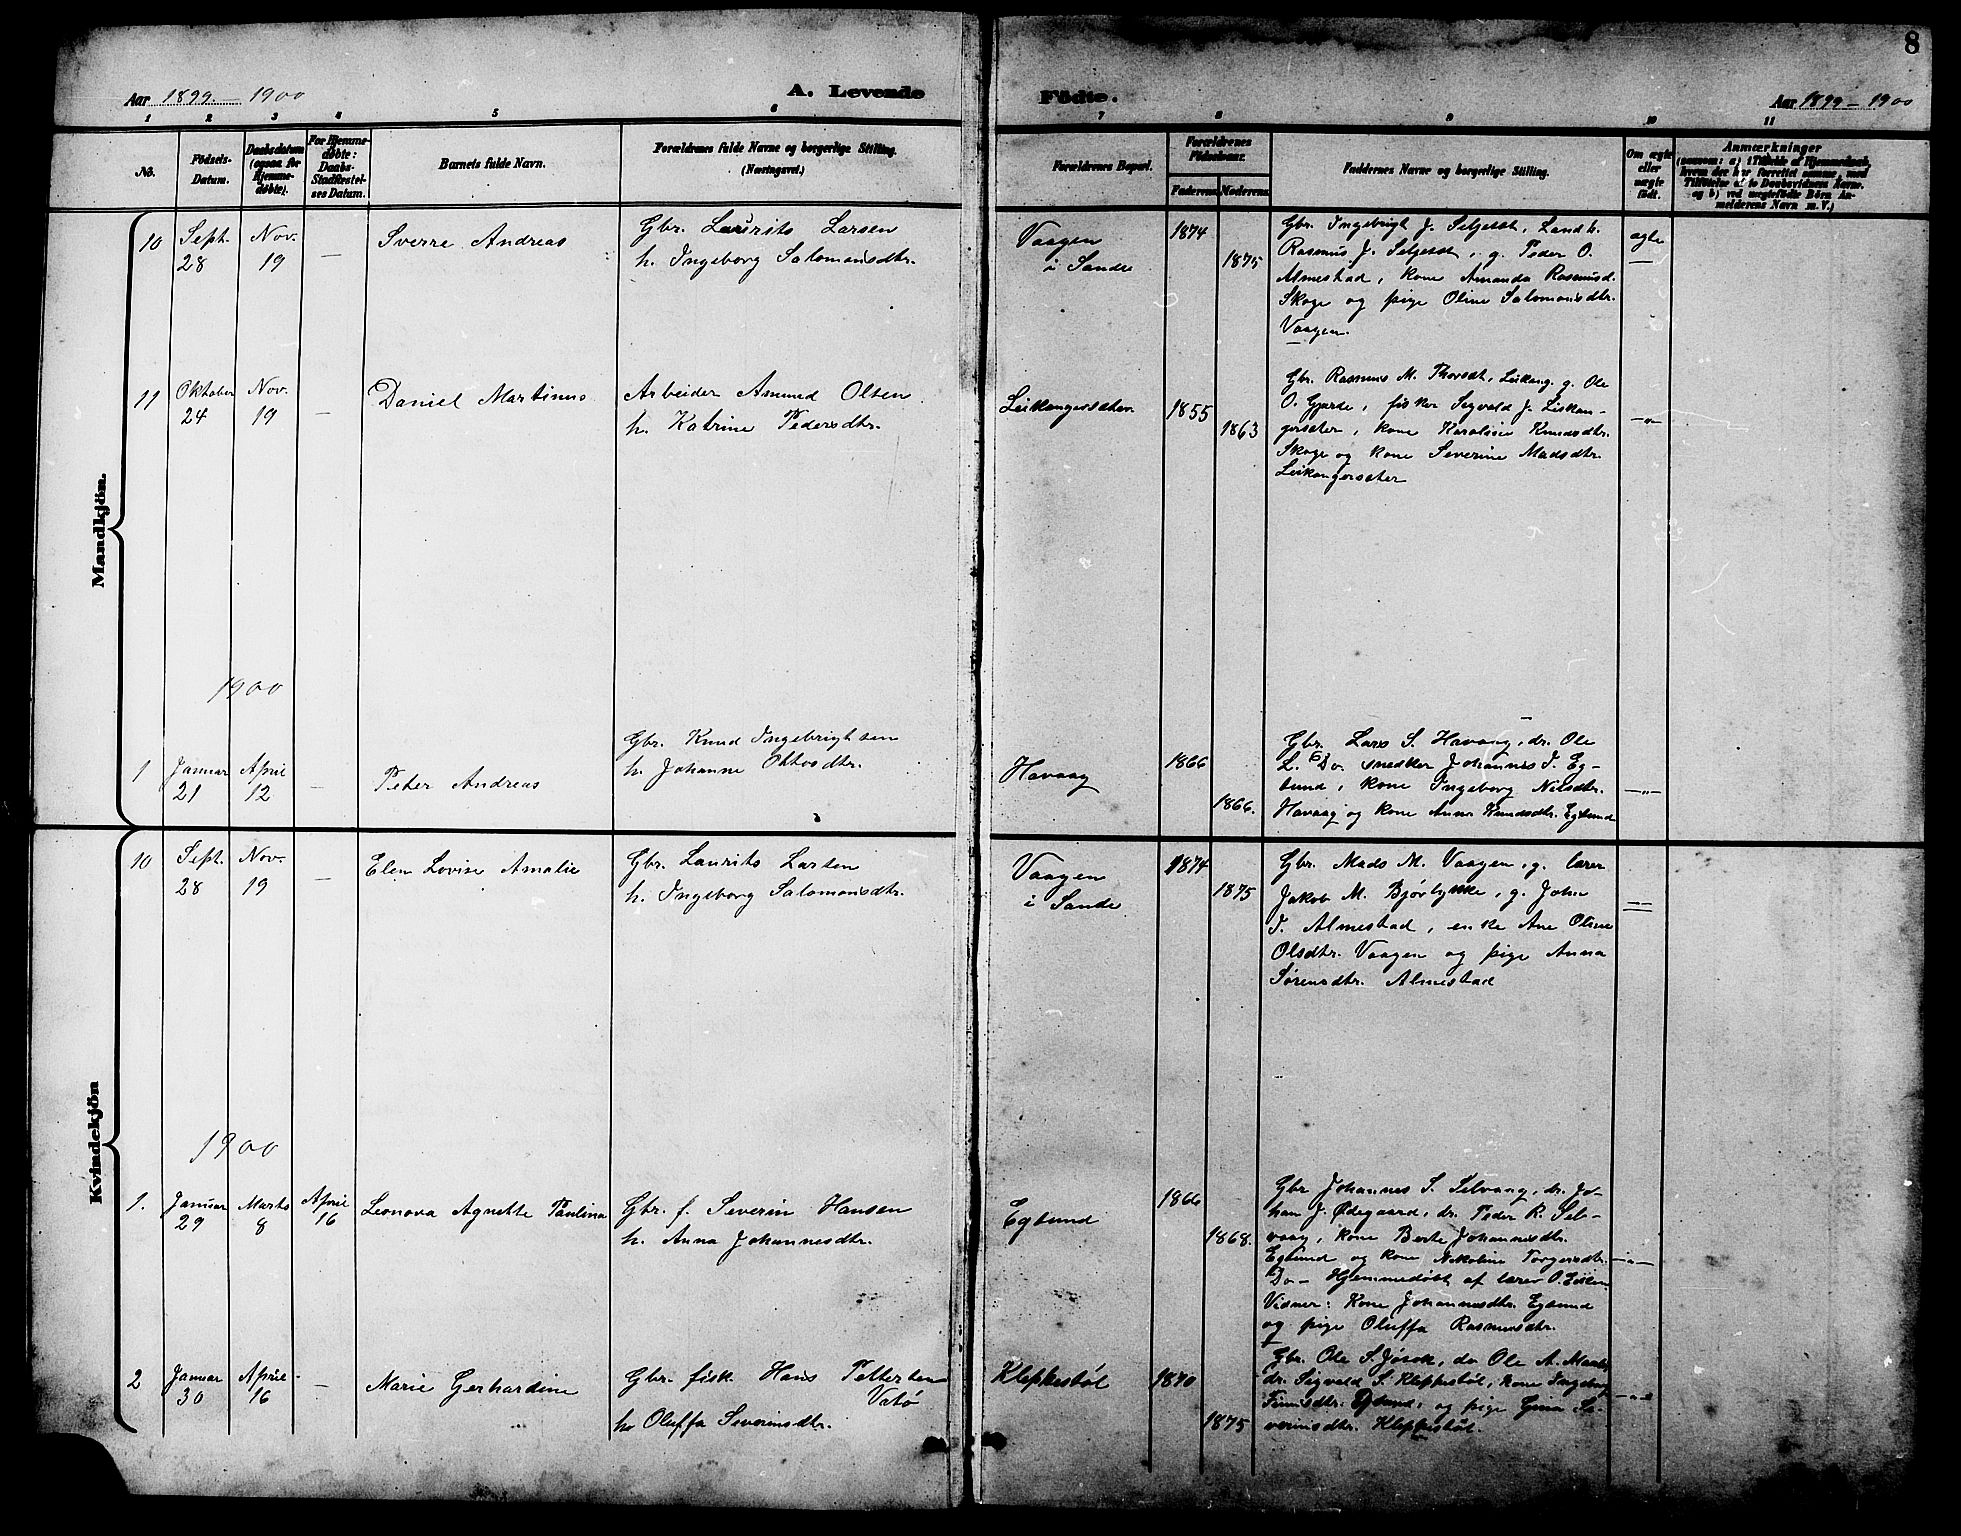 8
Aar 1899. – 1900
A. Levende
Födte.
Aar 1899 – 1900
1 2 3 4 5 6 7 8 9 10 11
No.
Födsels-Datum.
Daabsdatum (ogsaa for Hjemme-döbte).
For Hjemme-döbte: Daabs-Stadfæstel-ses Datum.
Barnets fulde Navn.
Forældrenes fulde Navne og borgerlige Stilling.
(Næringsvei.)
Forældrenes Bopæl.
Forældrenes Födselsaar.
Faderens. Moderens.
Faddernes Navne og borgerlige Stilling.
Om ægte eller uægte födt.
Anmærkninger
Mandkjön.
10
Sept. 28
Nov. 19
—
Sverre Andreas
Gbr. Laurits Larsen
h. Ingeborg Salomonsdtr.
Vaagen
i Sande
1874
1875
Gbr. Ingebrigt J. Seljeset, Landh.
Rasmus J. Seljeset, g. Peder O.
Almestad, kone Amanda Rasmusd.
Skoge og pige Oline Salomonsdtr.
Vaagen.
ægte
11
Oktober 24
Nov. 19
—
Daniel Martinus
Arbeider Amund Olsen
h. Katrine Pedersdtr.
Leikangersæter
1855
1863
Gbr. Rasmus M. Thorset, Leikang. g. Ole
O. Gjerde, fisker Sigvald J. Leikan-
gersæter, kone Karoline Knudsdtr.
Skoge og kone Severine Madsdtr.
Leikangersæter
—"—
1900
1
Januar 21
April 12
—
Peter Andreas
Gbr. Knud Ingebrigtsen
h. Johanne Ottosdtr.
Havaag
1866
1866.
Gbr. Lars S. Havaag, dr. Ole
L. Do. snedker Johannes I. Eg-
sund, kone Ingeborg Nilsdtr.
Havaag og kone Anna Knudsdtr. Egsund
—"—
Kvindekjön
10
Sept. 28
Nov. 19
—
Elen Lovise Amalie
Gbr. Laurits Larsen
h. Ingeborg Salomonsdtr.
Vaagen
i Sande
1874
1875
Gbr. Mads M. Vaagen, g. lærer
Jakob M. Bjørlykke, g. John
J. Almestad, enke Ane Oline
Olsdtr. Vaagen og pige Anna
Sørensdtr. Almestad
1900
1.
Januar 29
Marts 8
April 16
Leonora Agnette Paulina
Gbr. f. Severin Hansen
h. Anna Johannesdtr.
Egsund
1866
1868.
Gbr Johannes S. Selvaag, dr. Jo-
han J. Ødegaard, dr. Peder R. Sel-
vaag, kone Berte Johannesdtr.
Egsund og kone Nikoline Torgersdtr.
Do – Hjemmedøbt af lærer O.
Vidner: Kone Johannesdtr. Egsund
og pige Oluffa Rasmusdtr.
—"—
2
Januar 30
April 16
—
Marie Gerhardine
Gbr. fisk. Hans Pettersen
Vatø
h. Oluffa Severinsdtr.
Kleppestøl
1870
1875
Gbr. Ole S. Jøsok, do Ole A.
dr. Sigvald S. Kleppestøl, kone Ingeborg
Egsund, og pige Gina Se-
verinsdtr. Kleppestøl.
—"—